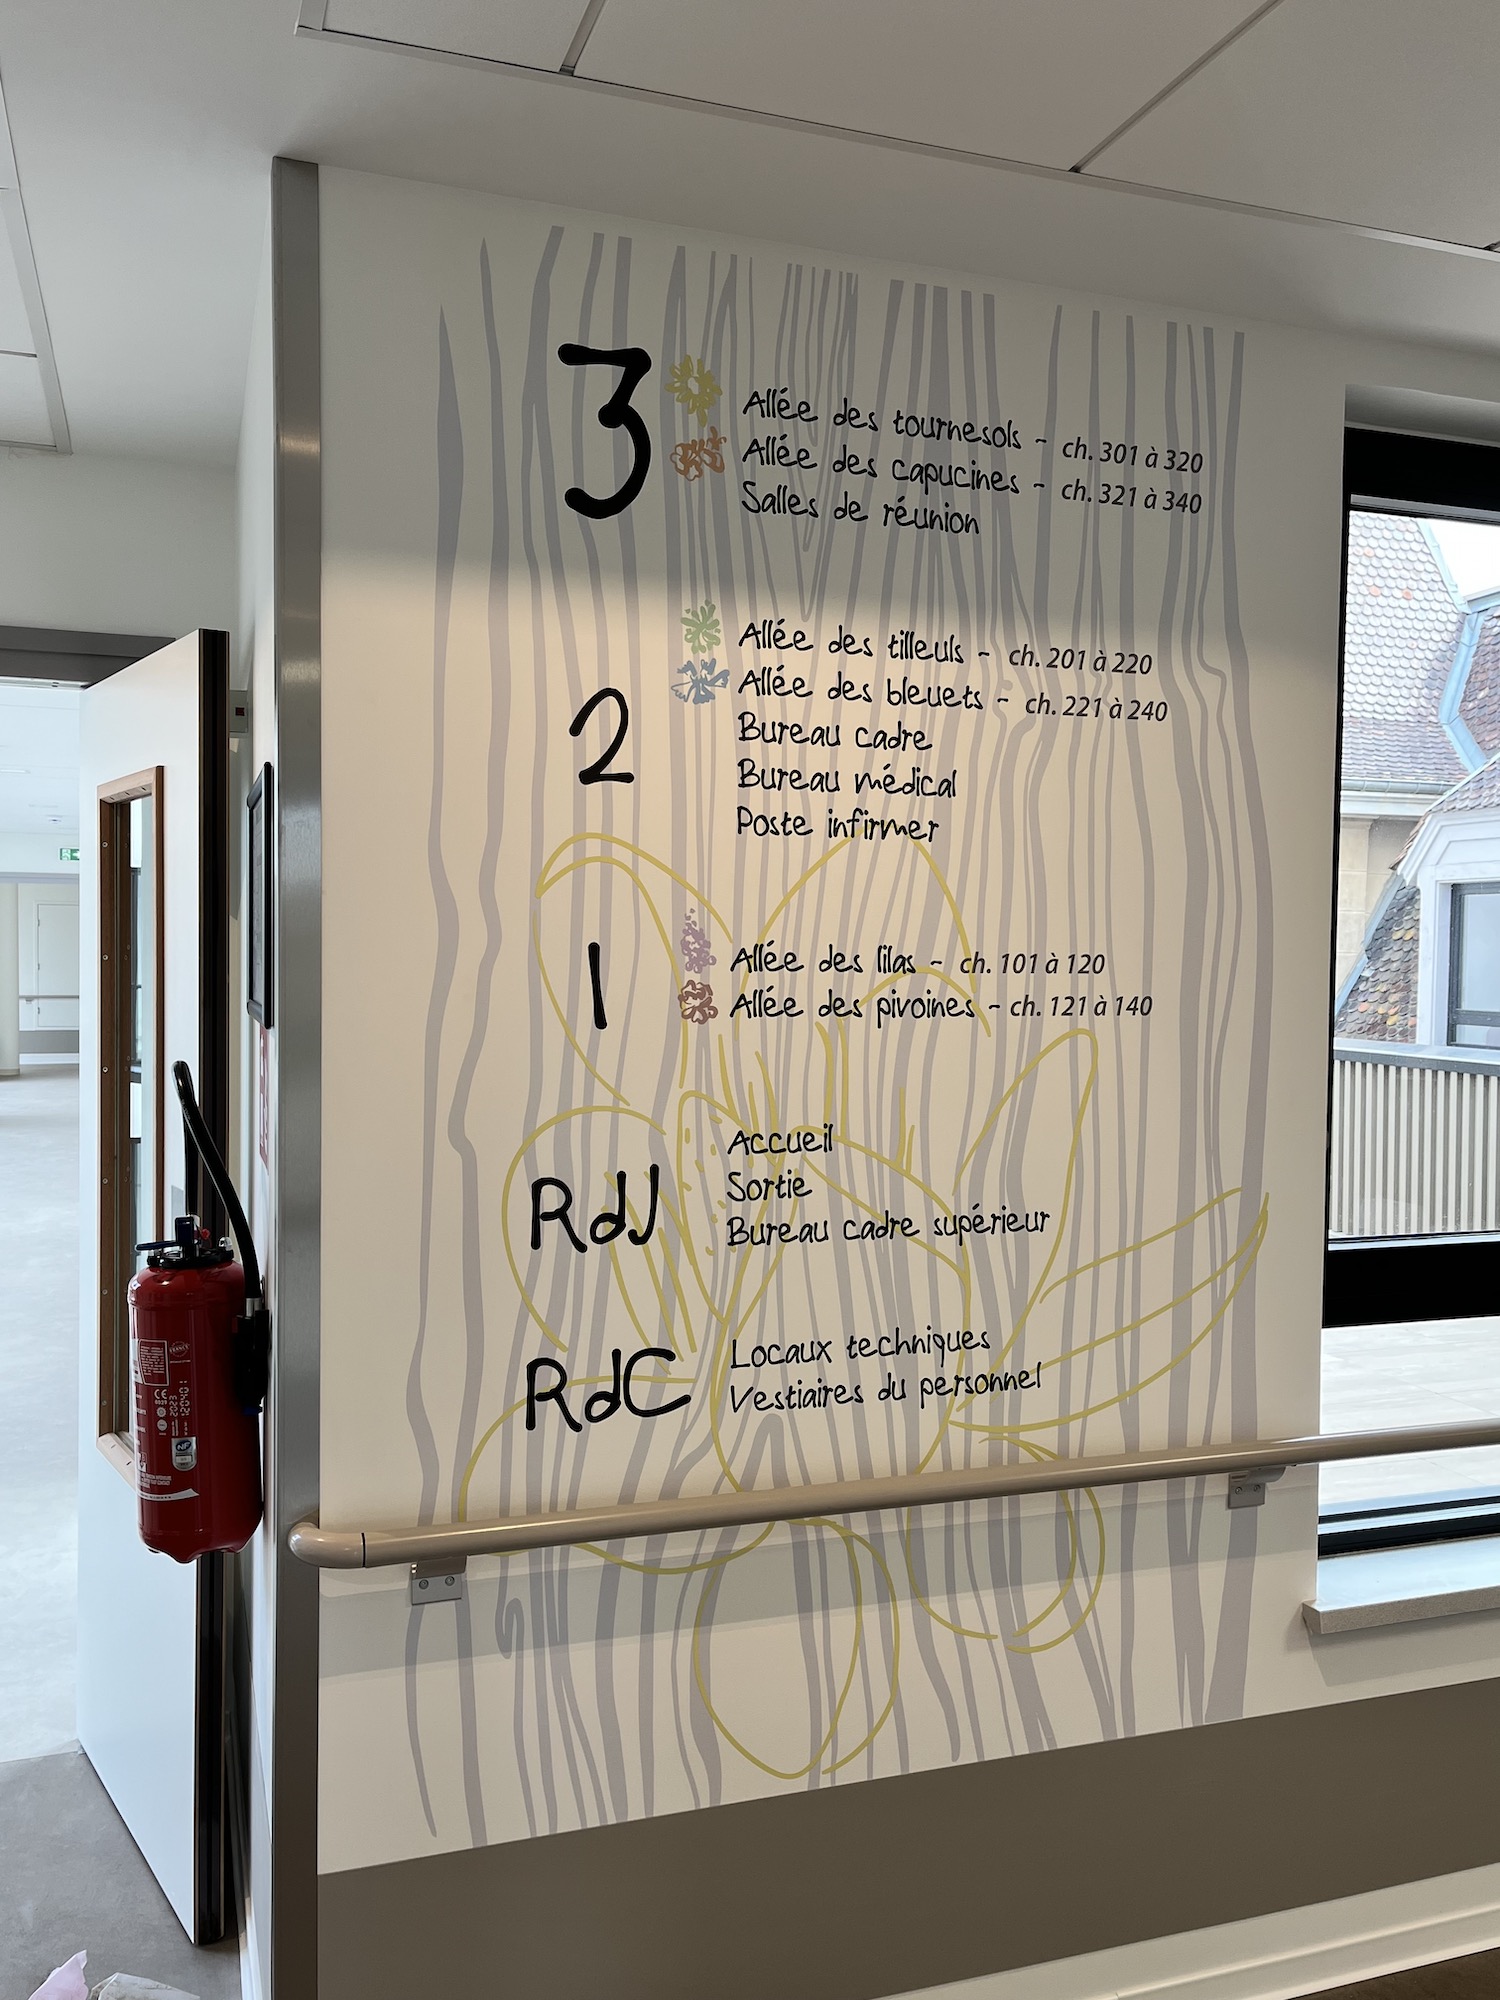 3
Allée des tournesols - ch. 301 à 320
Allée des capucines - ch. 321 à 340
Salles de réunion
2
Allée des tilleuls - ch. 201 à 220
Allée des bleuets - ch. 221 à 240
Bureau cadre
Bureau médical
Poste infirmer
1
Allée des lilas - ch. 101 à 120
Allée des pivoines - ch. 121 à 140
RdJ
Accueil
Sortie
Bureau cadre supérieur
RdC
Locaux techniques
Vestiaires du personnel
CE
2023
NF